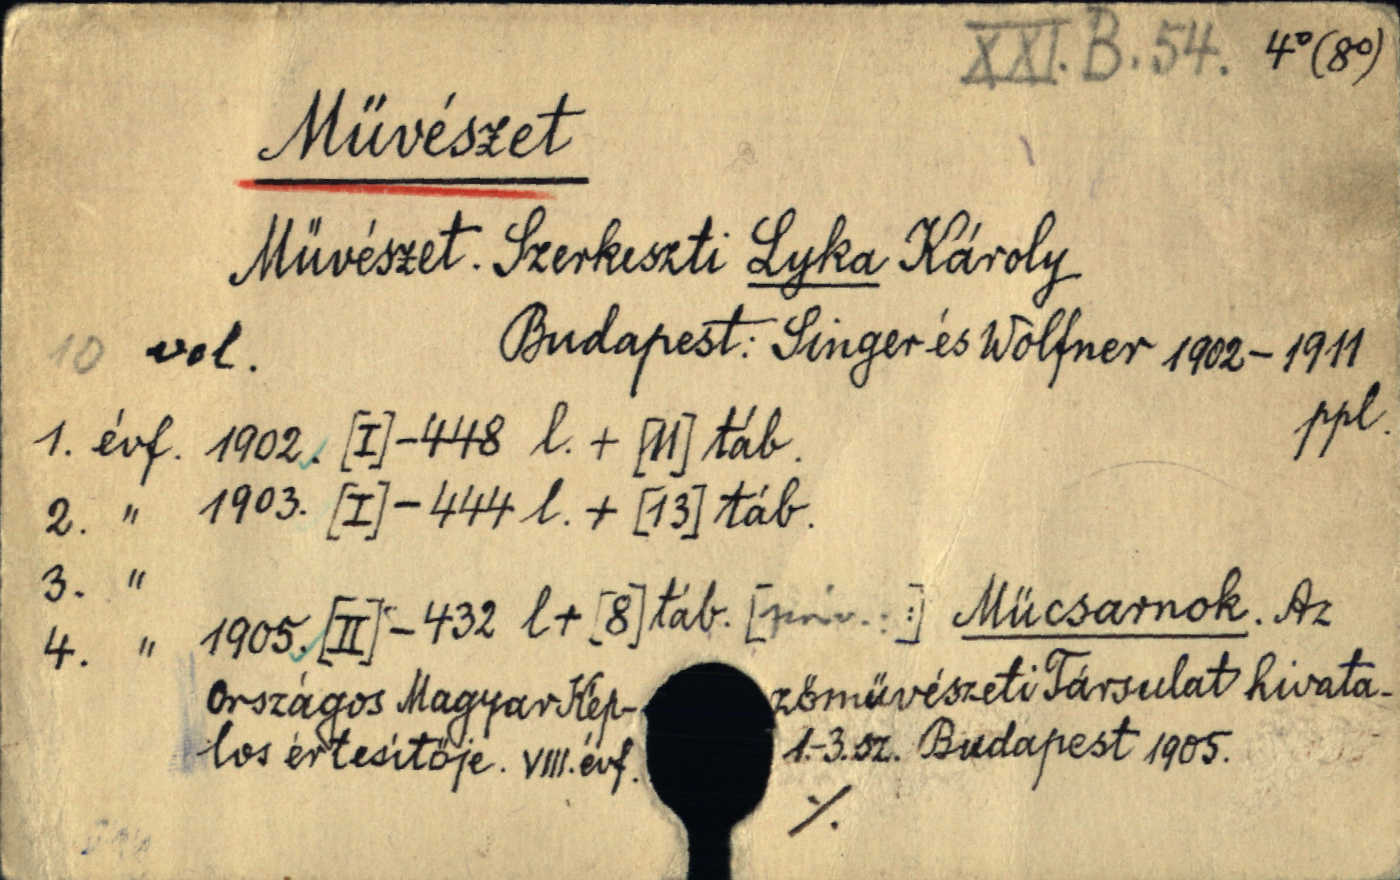 XXI. B. 54. 4°(8°)
Müvészet
Müvészet. Szerkeszti Lyka Károly
10 vol. Budapest: Singer és Wolfner 1902-1911
ppl.
1. évf. 1902. [I]-448 l. + [11] táb.
2. " 1903. [I]-444 l. + [13] táb.
3. "
4. " 1905. [II]-432 l + [8] táb. [:] Mücsarnok. Az
Országos Magyar Kép-zömüvészeti Társulat hivata-
los értesítöje. VIII. évf. 1.-3. sz. Budapest 1905.
./.